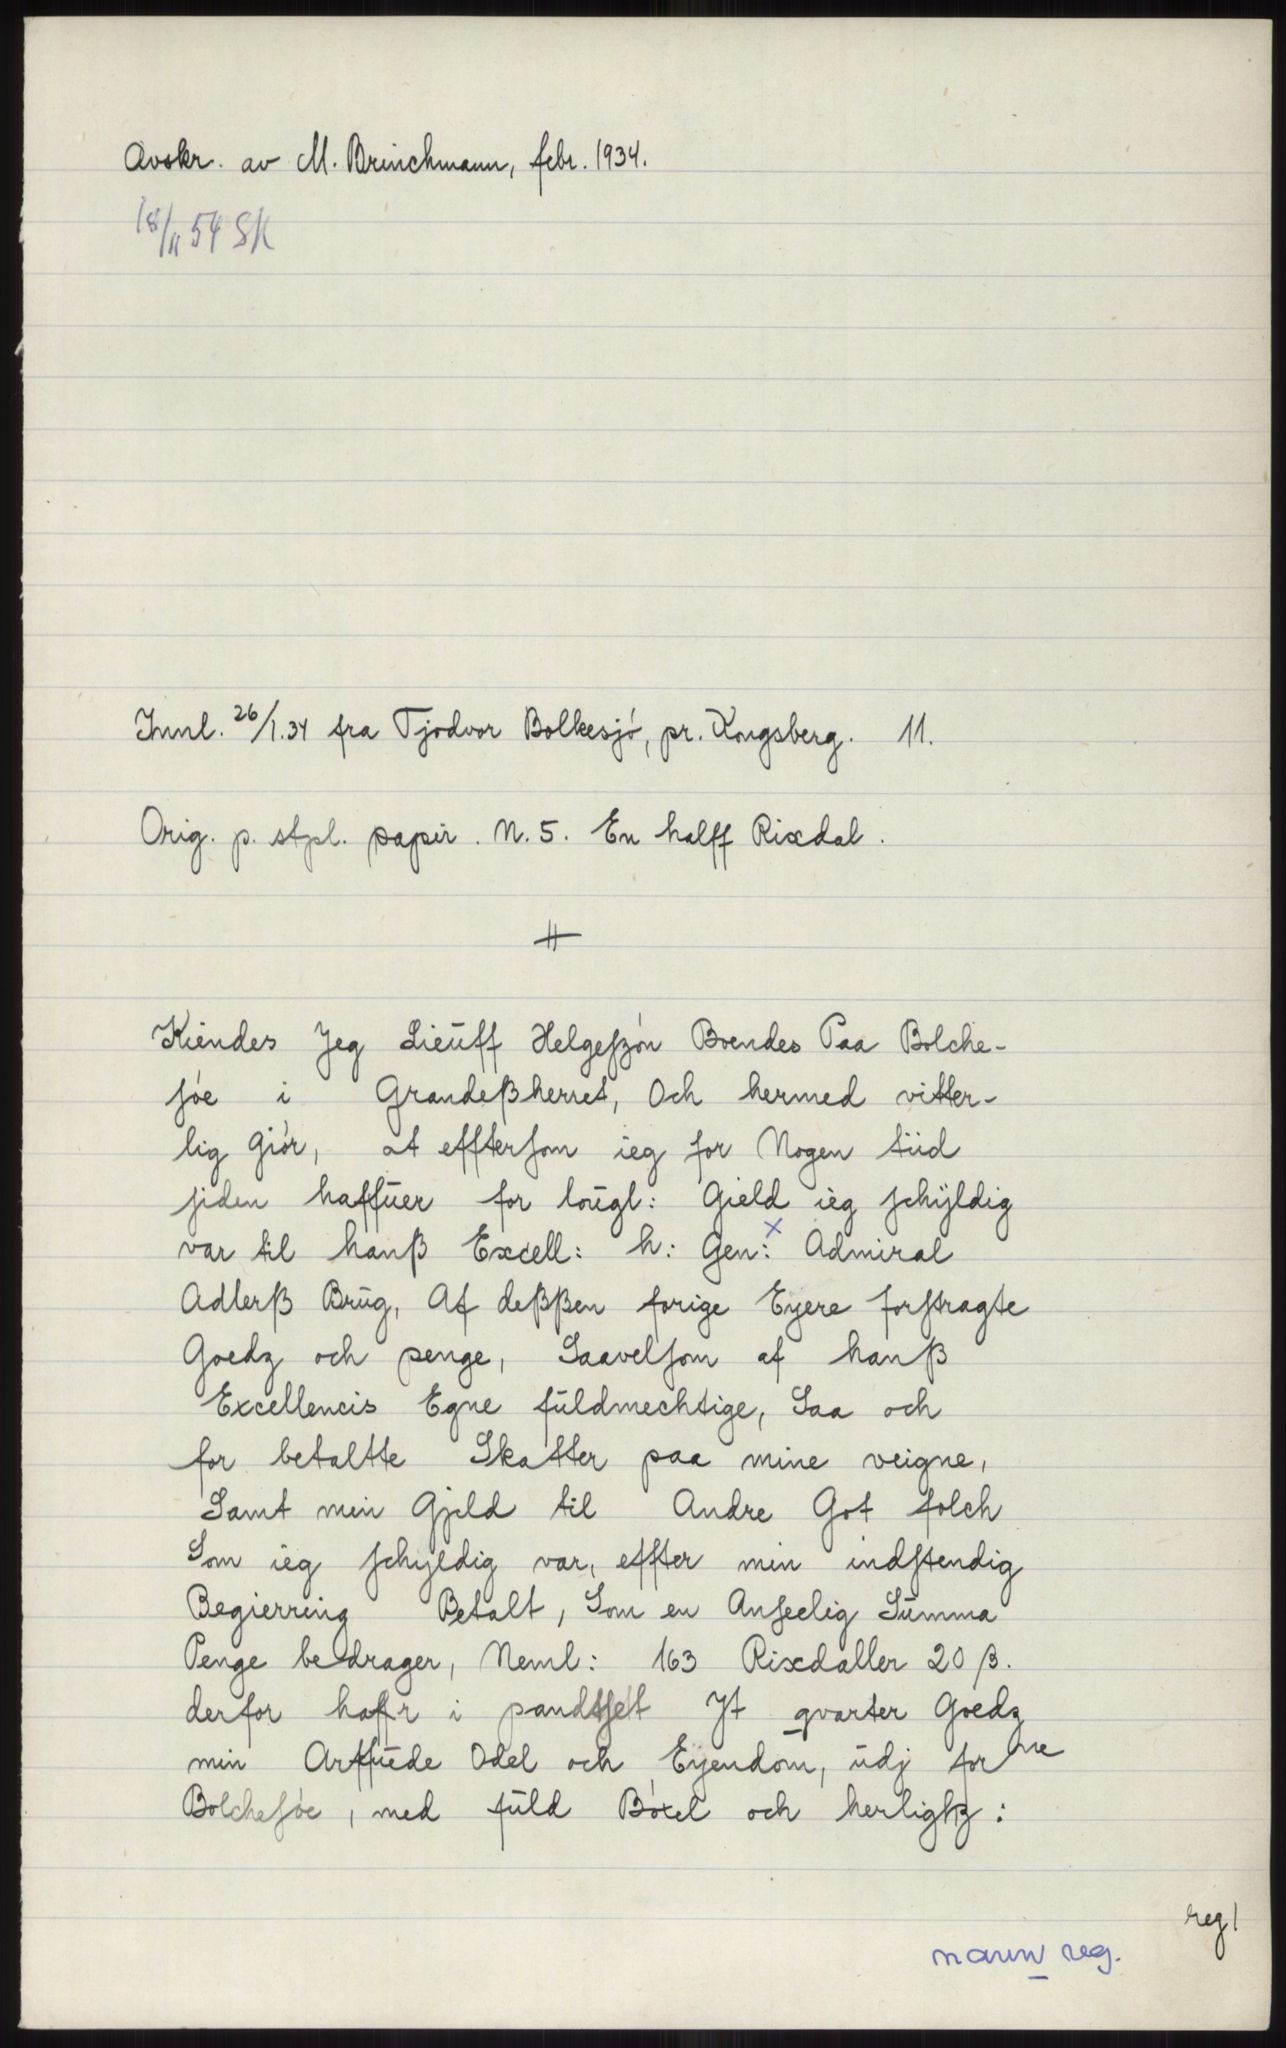 Avskr. av M. Brinchmann, febr. 1934.
18/11 54 SK
Innl. 26/1.34 fra Tjodvor Bolkesjó, pr. Kongsberg. 11.
Orig. p. stpl. papir. N. 5. En halff Rixdal.
Kiendes Jeg Lieuff Helgeſzón Boendes Paa Bolche-
ſóe i Grandeßherret, Och hermed vitter-
lig Giór, at effterſom ieg for Nogen tiid
ſiden haffŭer for loŭgl: Gield ieg ſchÿldig
var til hanß Excell: h: Gen: x Admiral
Adlerß Brŭg, Af deßßen forige Eÿere forſtragte
Goedz och penge, Saavelſom af hanß
Excellencis Egne fŭldmechtige, Saa och
for betaltte Skatter paa mine veigne,
Samt min Gjeld til Andre Got folch
Som ieg ſchyldig var, effter min indſtendig
Begierring Betalt, Som en Anſeelig Sŭmma
Penge bedrager, Neml: 163 Rixdaller 20 β.
derfor hafr i pandtſet Jt qvarter Goedz
min Arffŭede Odel och Eÿendom, ŭdj forne
Bolcheſóe, med fŭld Bóxel och herligħz:
reg!
navn reg.